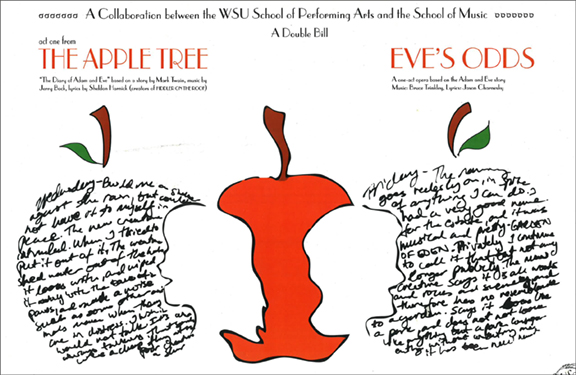 A Collaboration between the WSU School of Performing Arts and the School of Music
A Double Bill
act one from
THE APPLE TREE
"The Diary of Adam and Eve" based on a story by Mark Twain, music by
Jerry Bock, lyrics by Sheldon Harnick (creators of FIDDLER ON THE ROOF)
EVE'S ODDS
A one-act opera based on the Adam and Eve story
Music: Bruce Trinkley, Lyrics: Jason Charnesky
Wednesday- Build me a shelter
against the rain, but could
not have it to myself in
peace. The new creature
intruded. When I tried to
put it out of it, The water
shed water out of the holes
it looks with, and wiped
it away with the back of its
paws, and made a noise
such as some other
animals make when they
are in distress. I wish it
would not talk. It is
always talking.
Friday- The naming
goes recklessly on, in spite
of anything I can do. I
had a very good name
for the estate, and it was
musical and pretty- GARDEN
OF EDEN. Privately, I continue
to call it that, but not any
longer publicly. The new
creature says it is all woods
and rocks and scenery and
therefore has no resemblance
to a garden. Says it looks like
a park, and does not look
like anything but a park.
it has been new